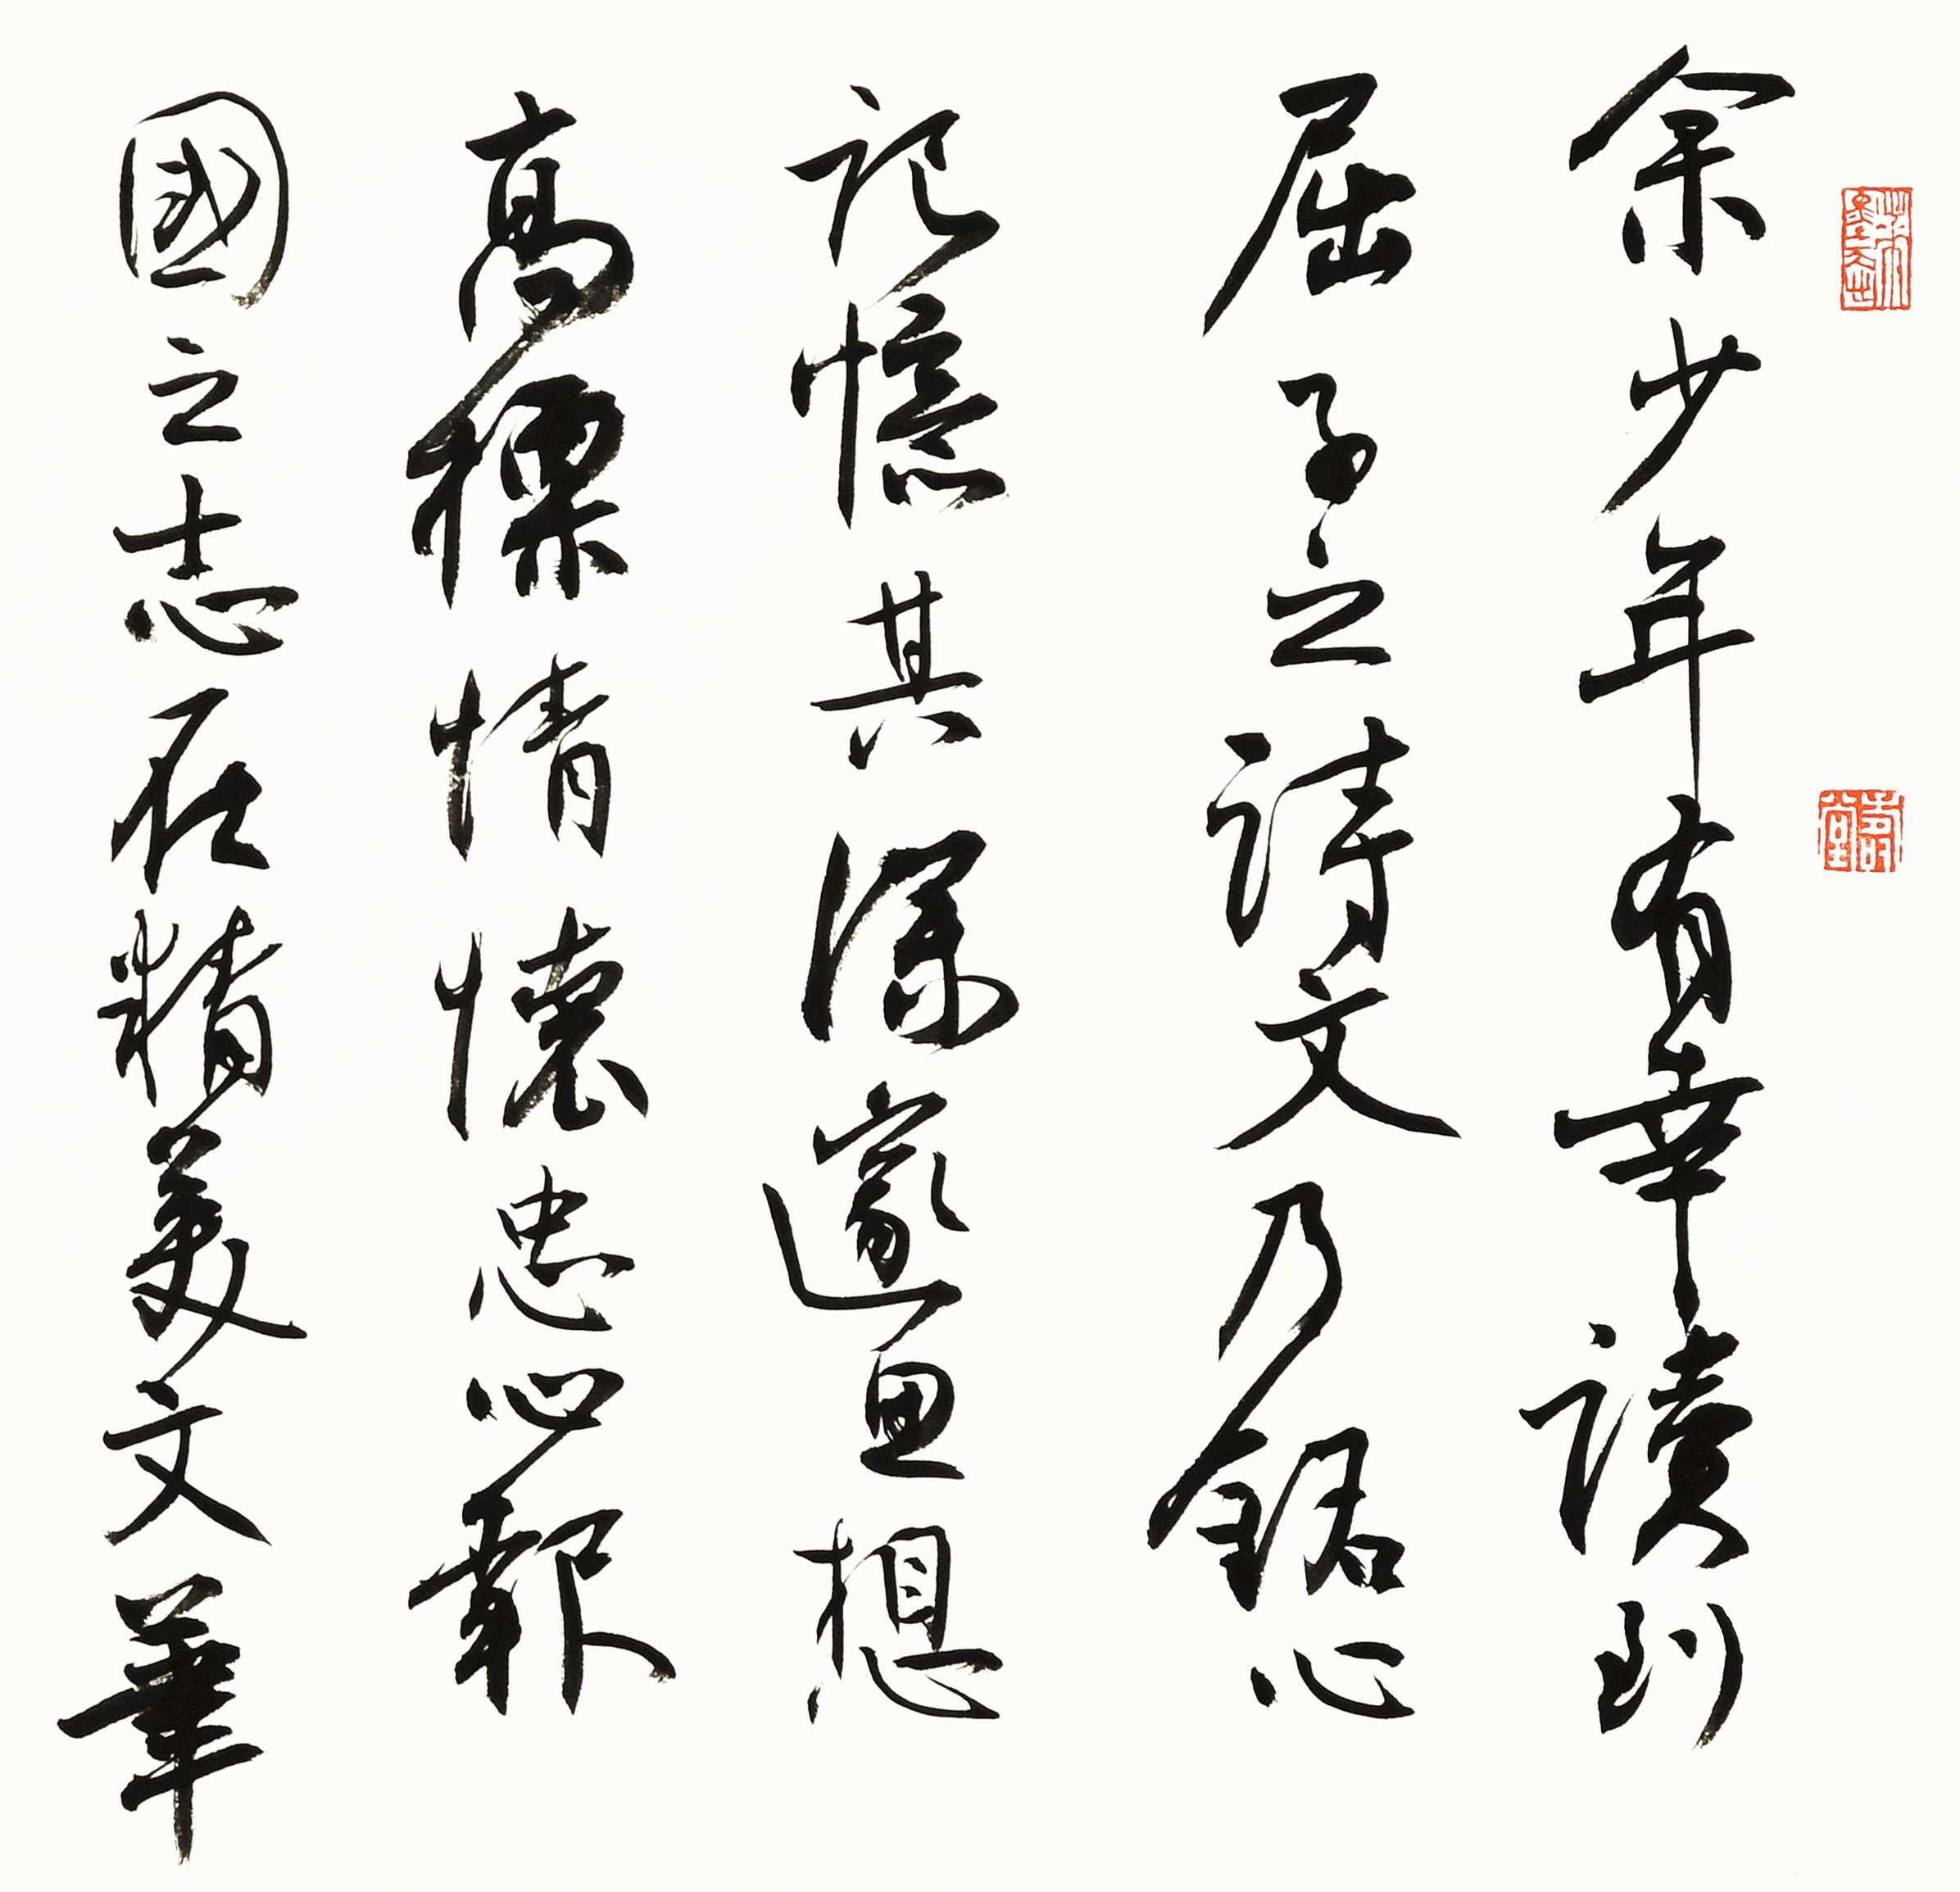 余少年有幸讀到
屈子之詩文乃銘心
記憶其深邃思想
高標情懷忠心報
國之志在精美文華